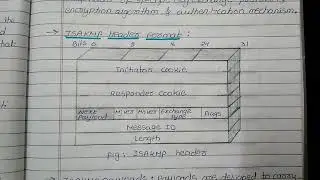 encryption algorithm & authentication mechanism.
→ ISAKMP Header Format:
Bits 0 8 16 24 31
Initiator cookie
Responder cookie
Next Payload MjVer MnVer Exchange Type Flags
Message ID
Length
fig: ISAKMP header